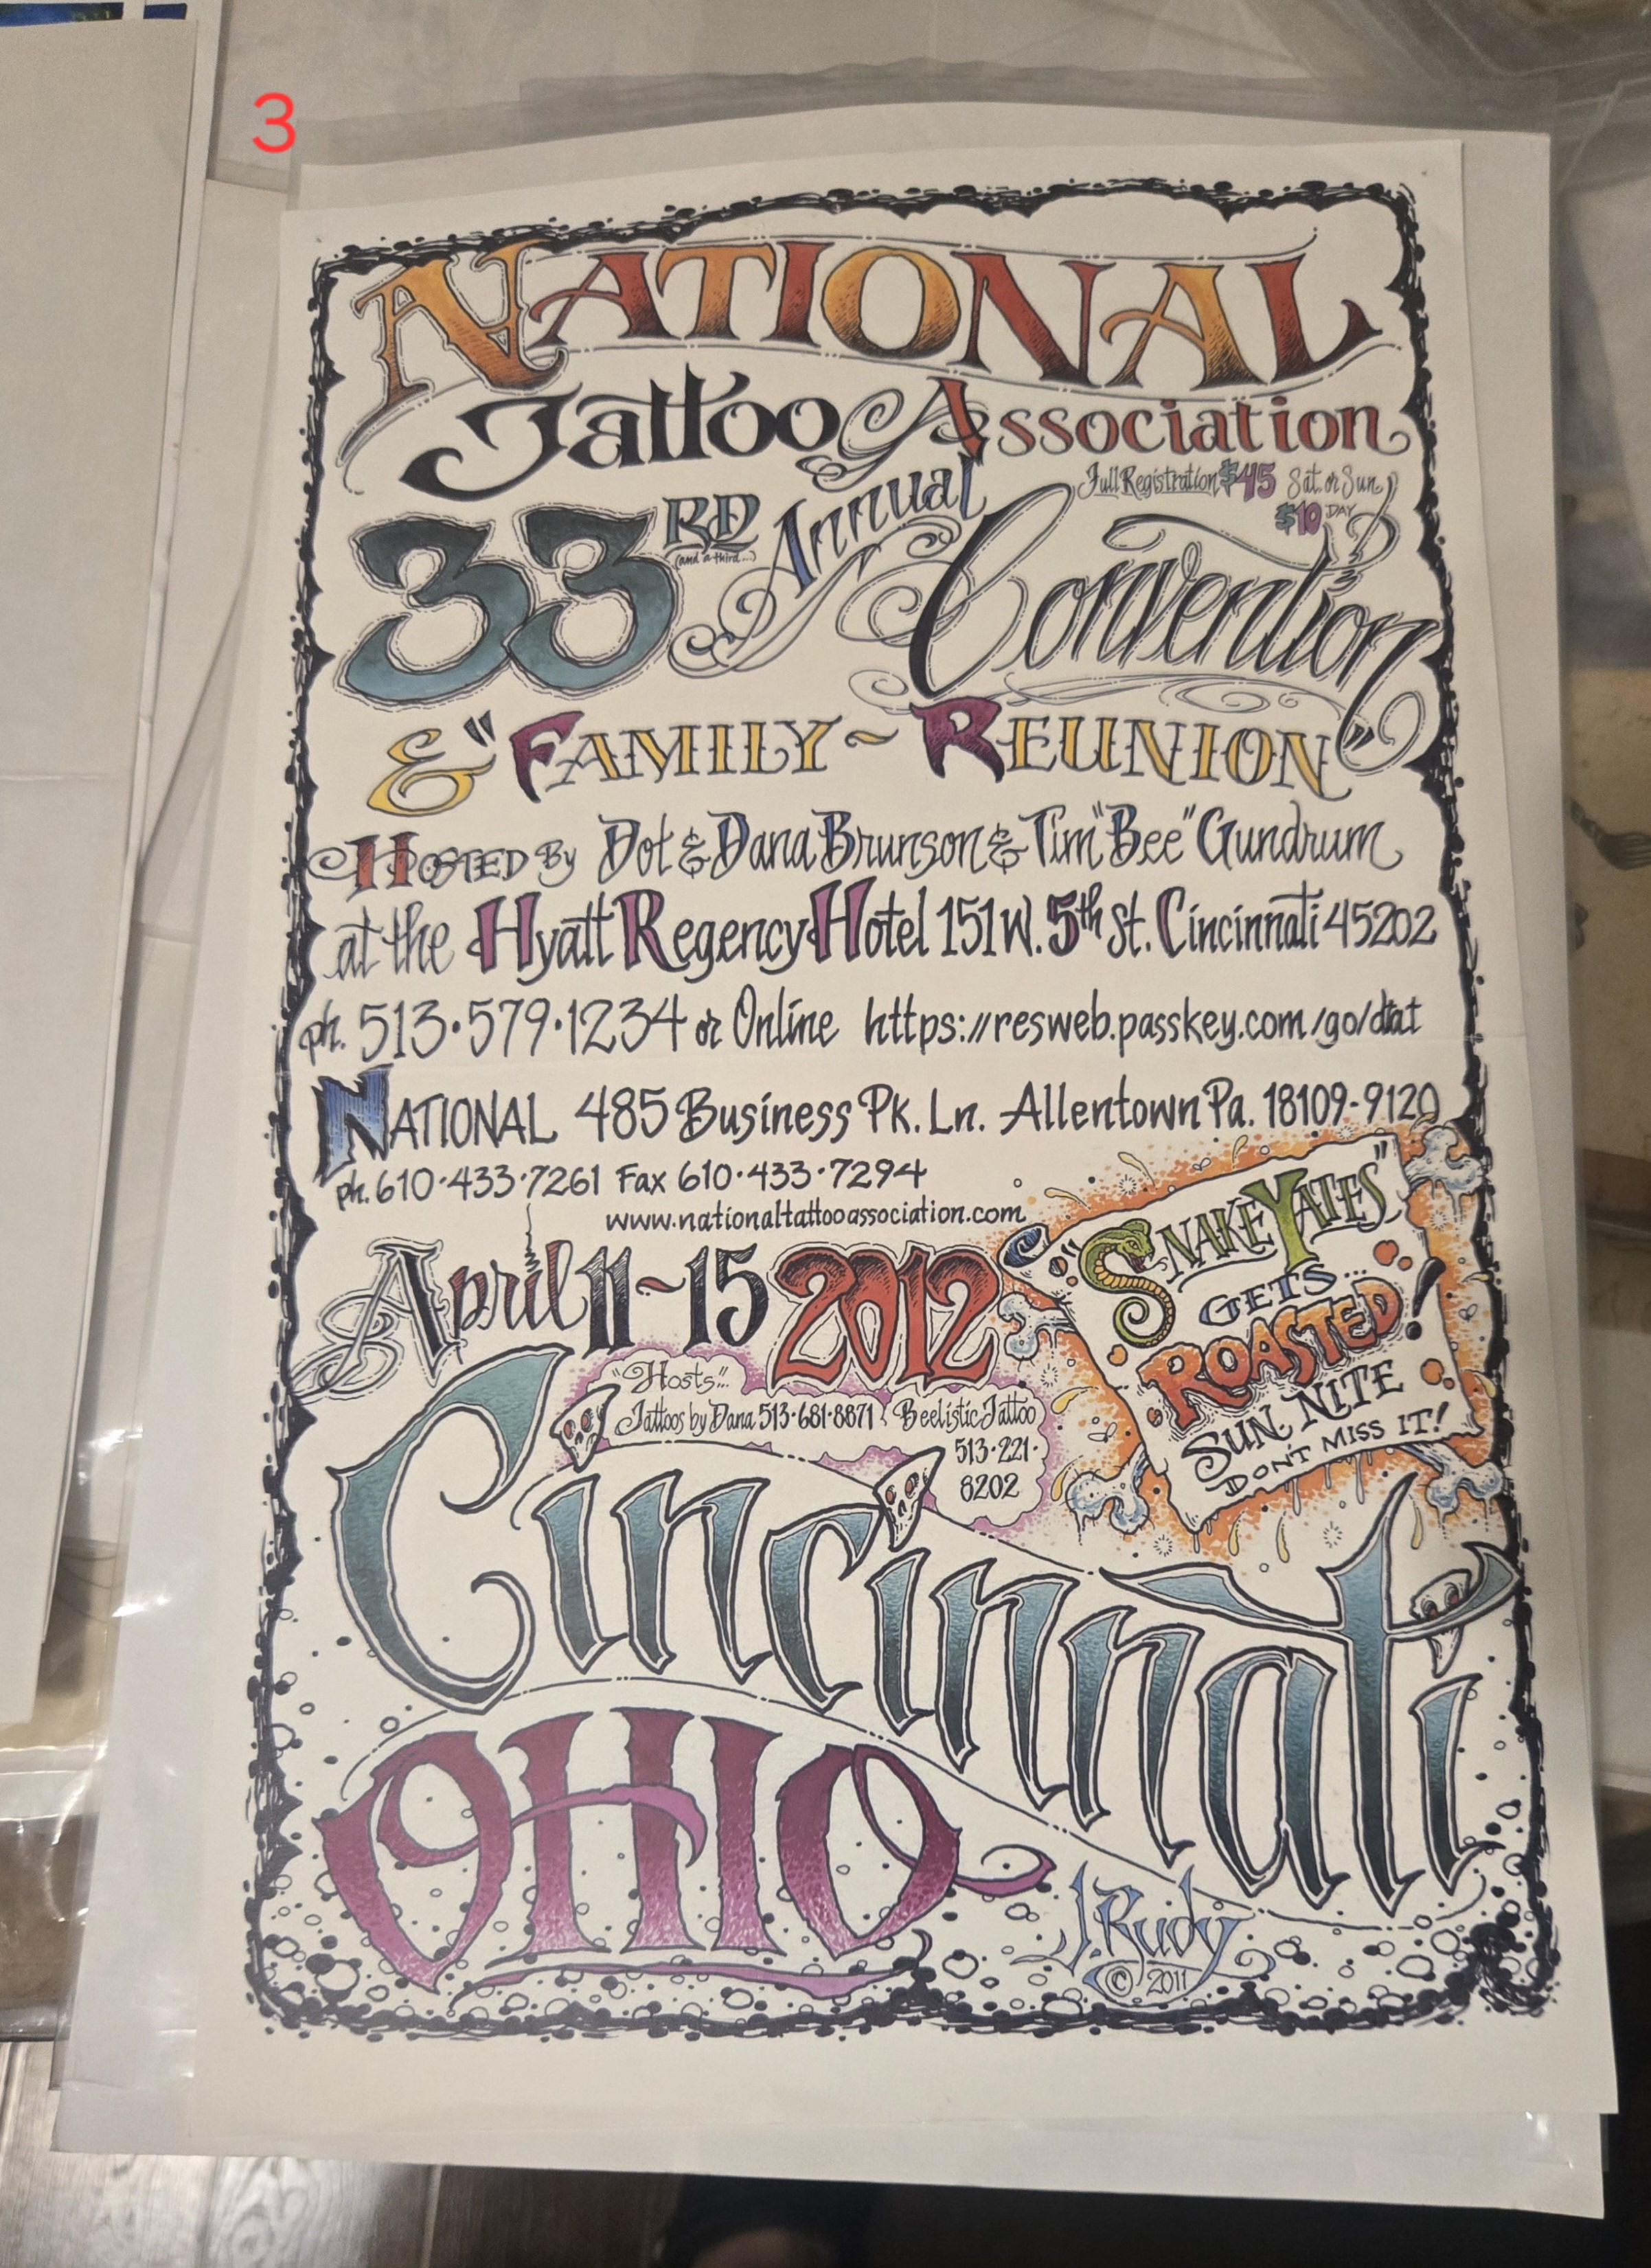 3
NATIONAL
Tattoo Association
Full Registration $45 Sat. or Sun.
$10 DAY
33RD Annual Convention
(and a third...)
& "FAMILY~REUNION"
HOSTED By Dot & Dana Brunson & Tim "Bee" Gundrum
at the Hyatt Regency Hotel 151 W. 5th St. Cincinnati 45202
ph. 513·579·1234 or Online https://resweb.passkey.com/go/dtat
NATIONAL 485 Business Pk. Ln. Allentown Pa. 18109-9120
ph. 610·433·7261 Fax 610·433·7294
www.nationaltattooassociation.com
April 11~15 2012
"SNAKE YATES"
GETS...
ROASTED!
SUN. NITE
DON'T MISS IT!
"Hosts"..
Tattoos by Dana 513·681·8871 Beelistic Tattoo
513·221·
8202
Cincinnati
OHIO
J. Rudy
© 2011